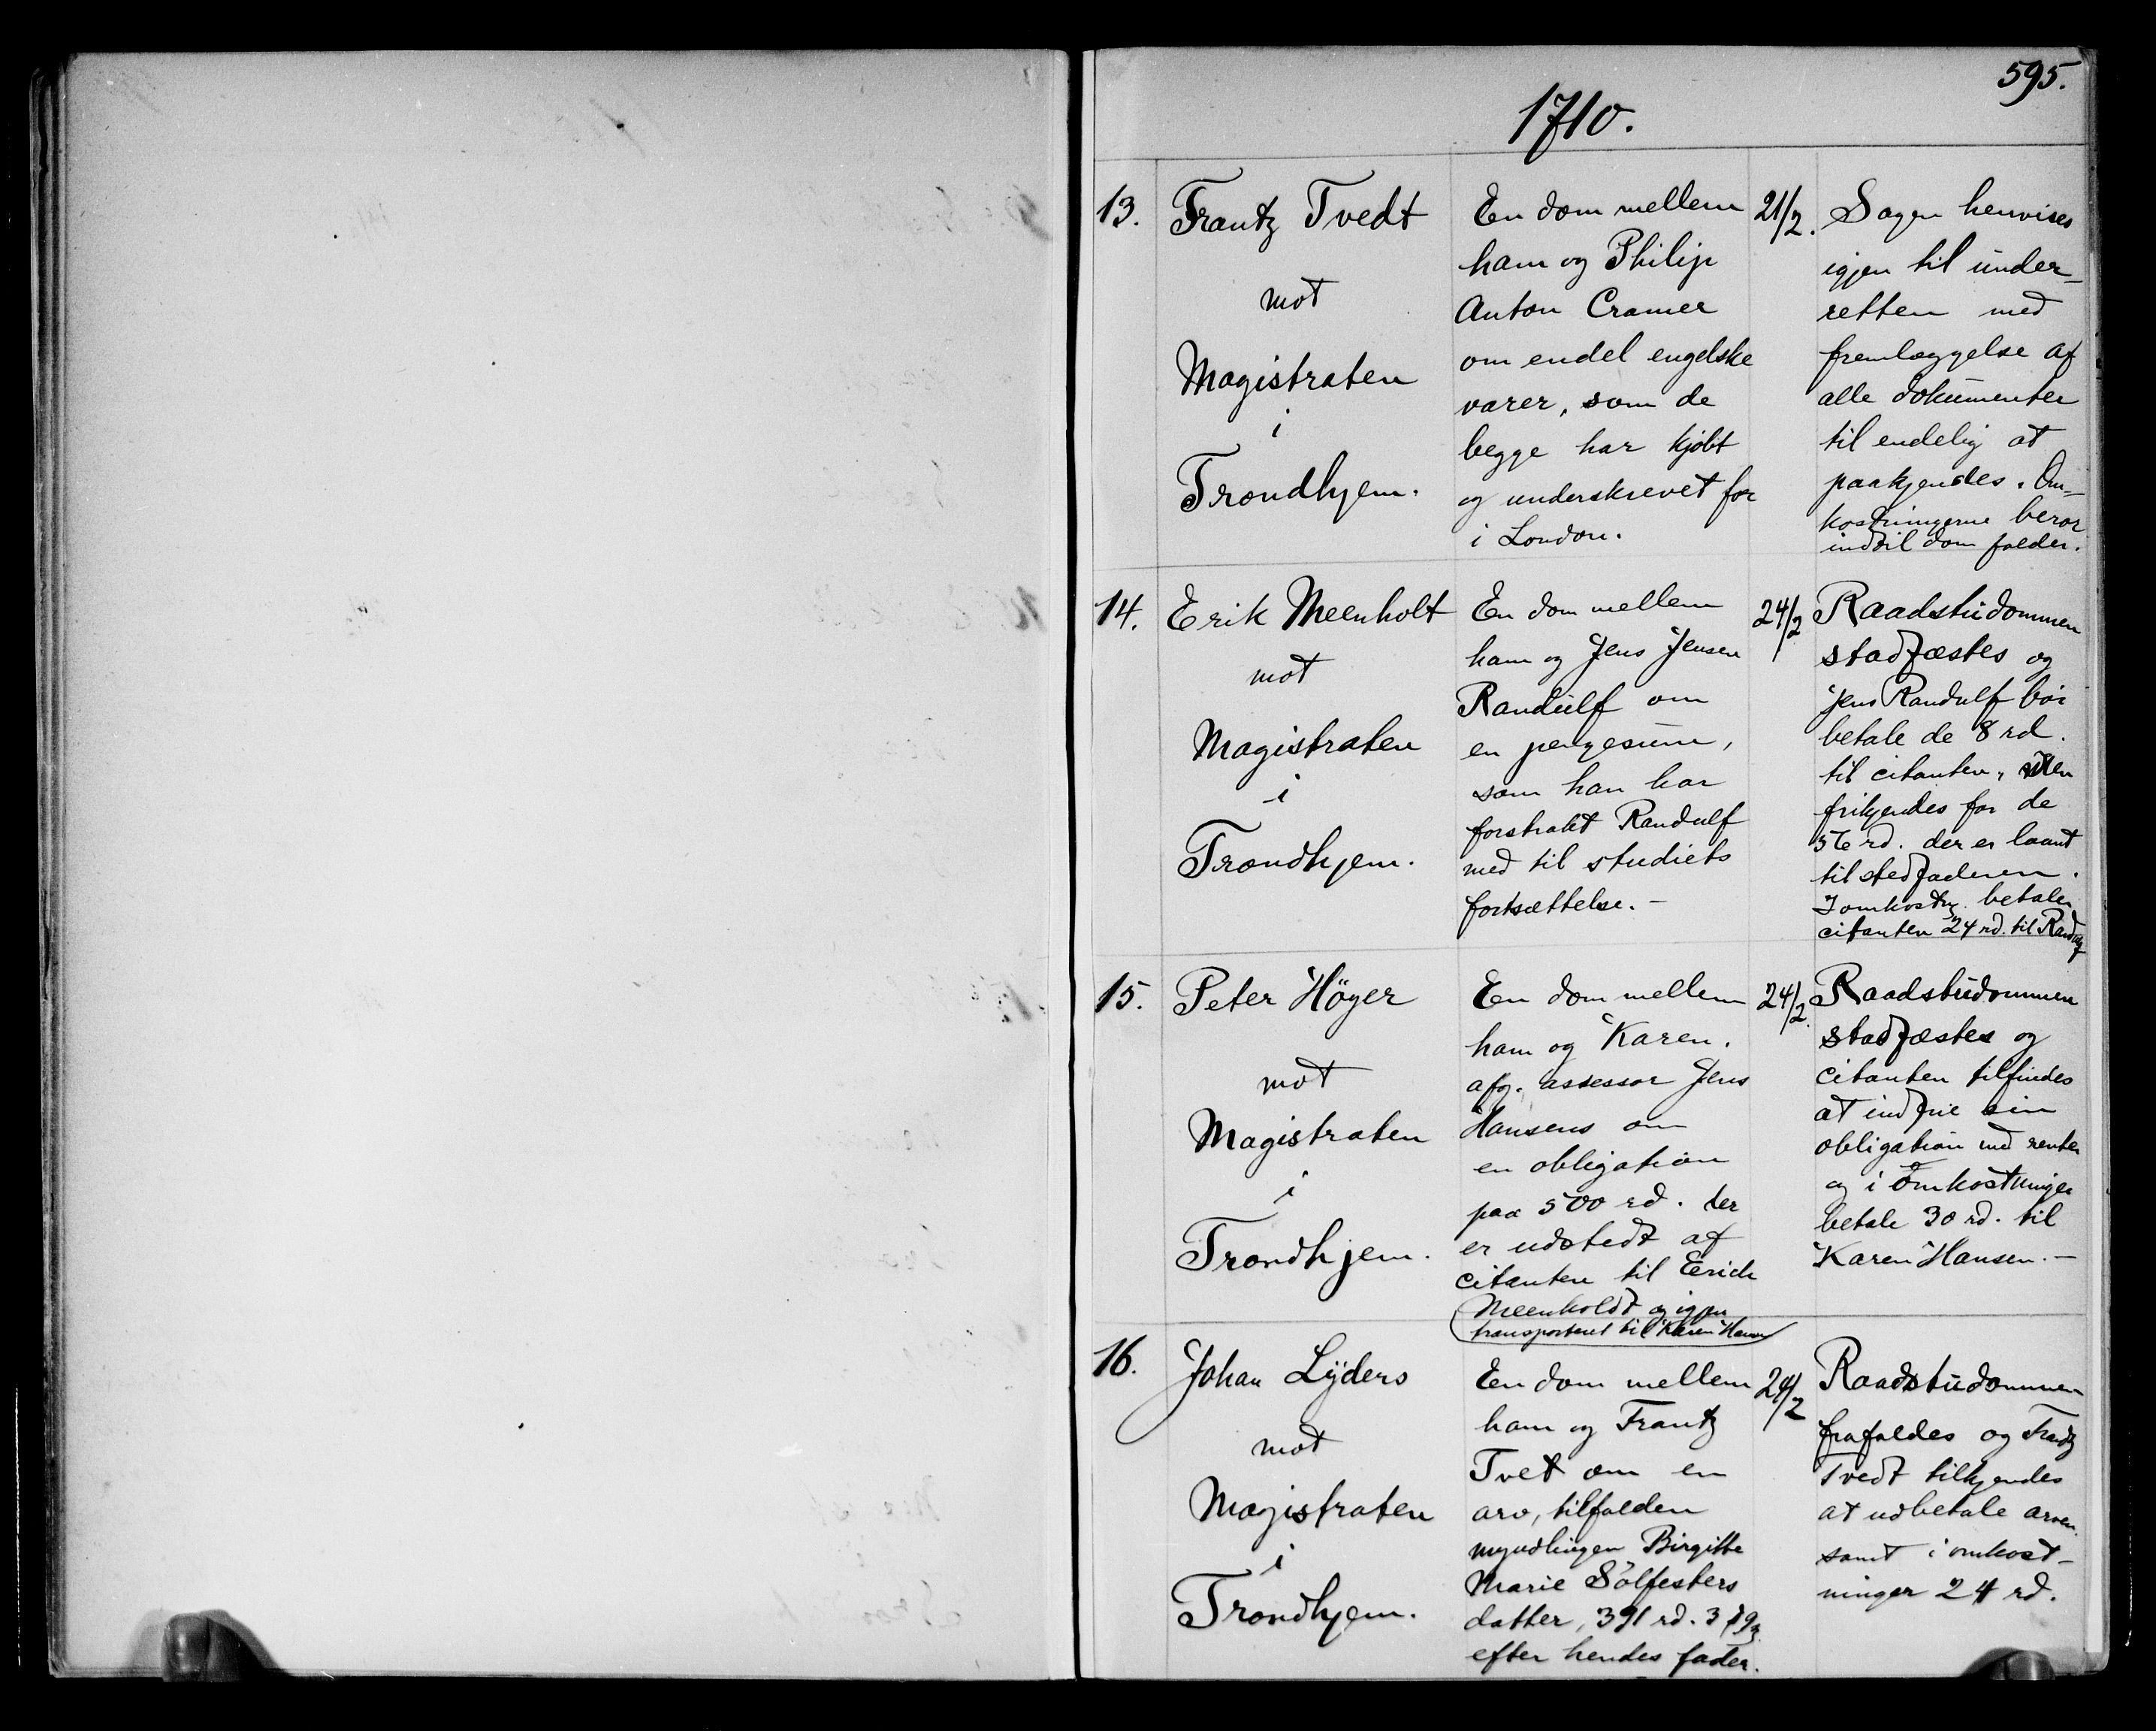 595.
1710.
13.
Frantz Tvedt
mot
Magistraten
i
Trondhjem.
En dom mellem
ham og Philip
Anton Cramer
om endel engelske
varer, som de
begge har kjöbt
og underskrevet for
i London.
21/2.
Sagen henvises
igjen til under-
retten med
fremlæggelse af
alle dokumenter
til endelig at
paakjendes. Om-
kostningerne beror
indtil dom falder.
14.
Erik Meenholt
mot
Magistraten
i
Trondhjem.
En dom mellem
ham og Jens Jensen
Randulf om
en pengesum,
som han har
forstrakt Randulf
med til studiets
fortsættelse. -
24/2
Raadstudommen
stadfæstes og
Jens Randulf bör
betale de 8 rd.
til citanten, men
frikjendes for de
56 rd. der er laant
til stedfaderen.
I omkostng. betaler
citanten 24 rd. til Randulf
15.
Peter Höyer
mot
Magistraten
i
Trondhjem.
En dom mellem
ham og Karen,
afg. assessor Jens
Hansens om
en obligation
paa 500 rd. der
er udstedt af
citanten til Erich
Meenholdt og igjen
transporteret til Karen Hansen
24/2.
Raadstudommen
stadfæstes og
citanten tilfindes
at indfrie sin
obligation med renter
og i omkostninger
betale 30 rd. til
Karen Hansen. -
16.
Johan Lÿders
mot
Magistraten
i
Trondhjem.
En dom mellem
ham og Frantz
Tvet om en
arv, tilfalden
myndlingen Birgitte
Marie Sölfesters
datter, 391 rd. 3
efter hendes fader.
24/2
Raadstudommen
frafaldes og Frantz
Tvedt tilkjendes
at udbetale arven
samt i omkost-
ninger 24 rd.